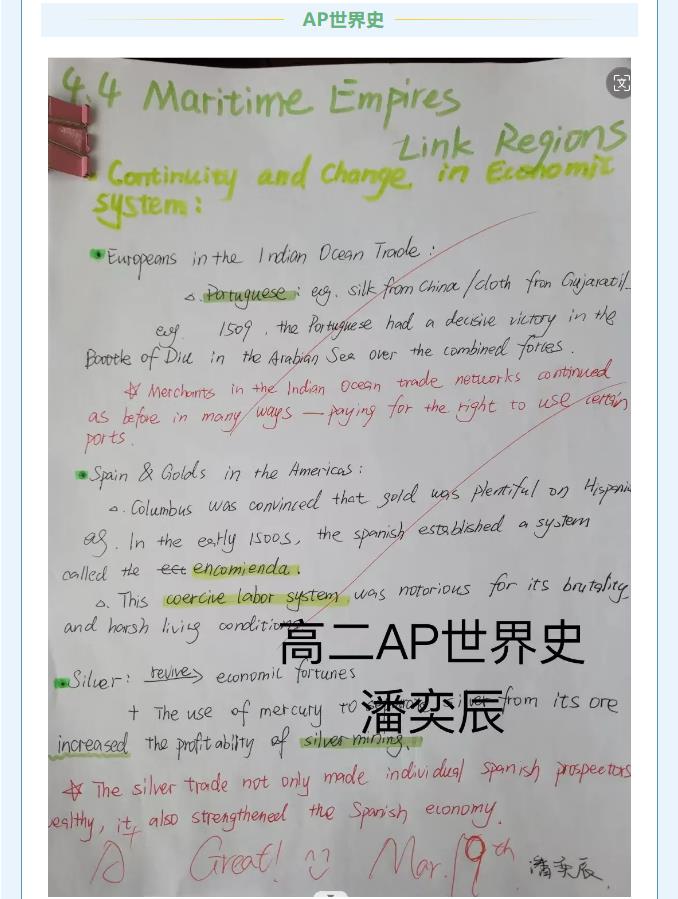 AP世界史
4.4 Maritime Empires
Link Regions
Continuity and Change in Economic
system:
Europeans in the Indian Ocean Trade:
△. Portuguese: eg. silk from China/cloth from Gujaratil
eg. 1509, the Portuguese had a decisive victory in the
Boottle of Diu in the Arabian Sea over the combined forces.
☆ Merchants in the Indian Ocean trade networks continued
as before in many ways — paying for the right to use certain
ports.
Spain & Golds in the Americas:
△. Columbus was convinced that gold was plentiful on Hispani
eg. In the early 1500s, the spanish established a system
called the ect encomienda.
△. This coercive labor system was notorious for its brutality
and harsh living conditions
高二AP世界史
Silver: revive> economic fortunes
+ The use of mercury to silver from its ore
潘奕辰
increased the profitability of silver mining.
☆ The silver trade not only made individual spanish prospectors
ealthy, it also strengthened the Spanish economy.
A+ Great! Mar. 19th 潘奕辰